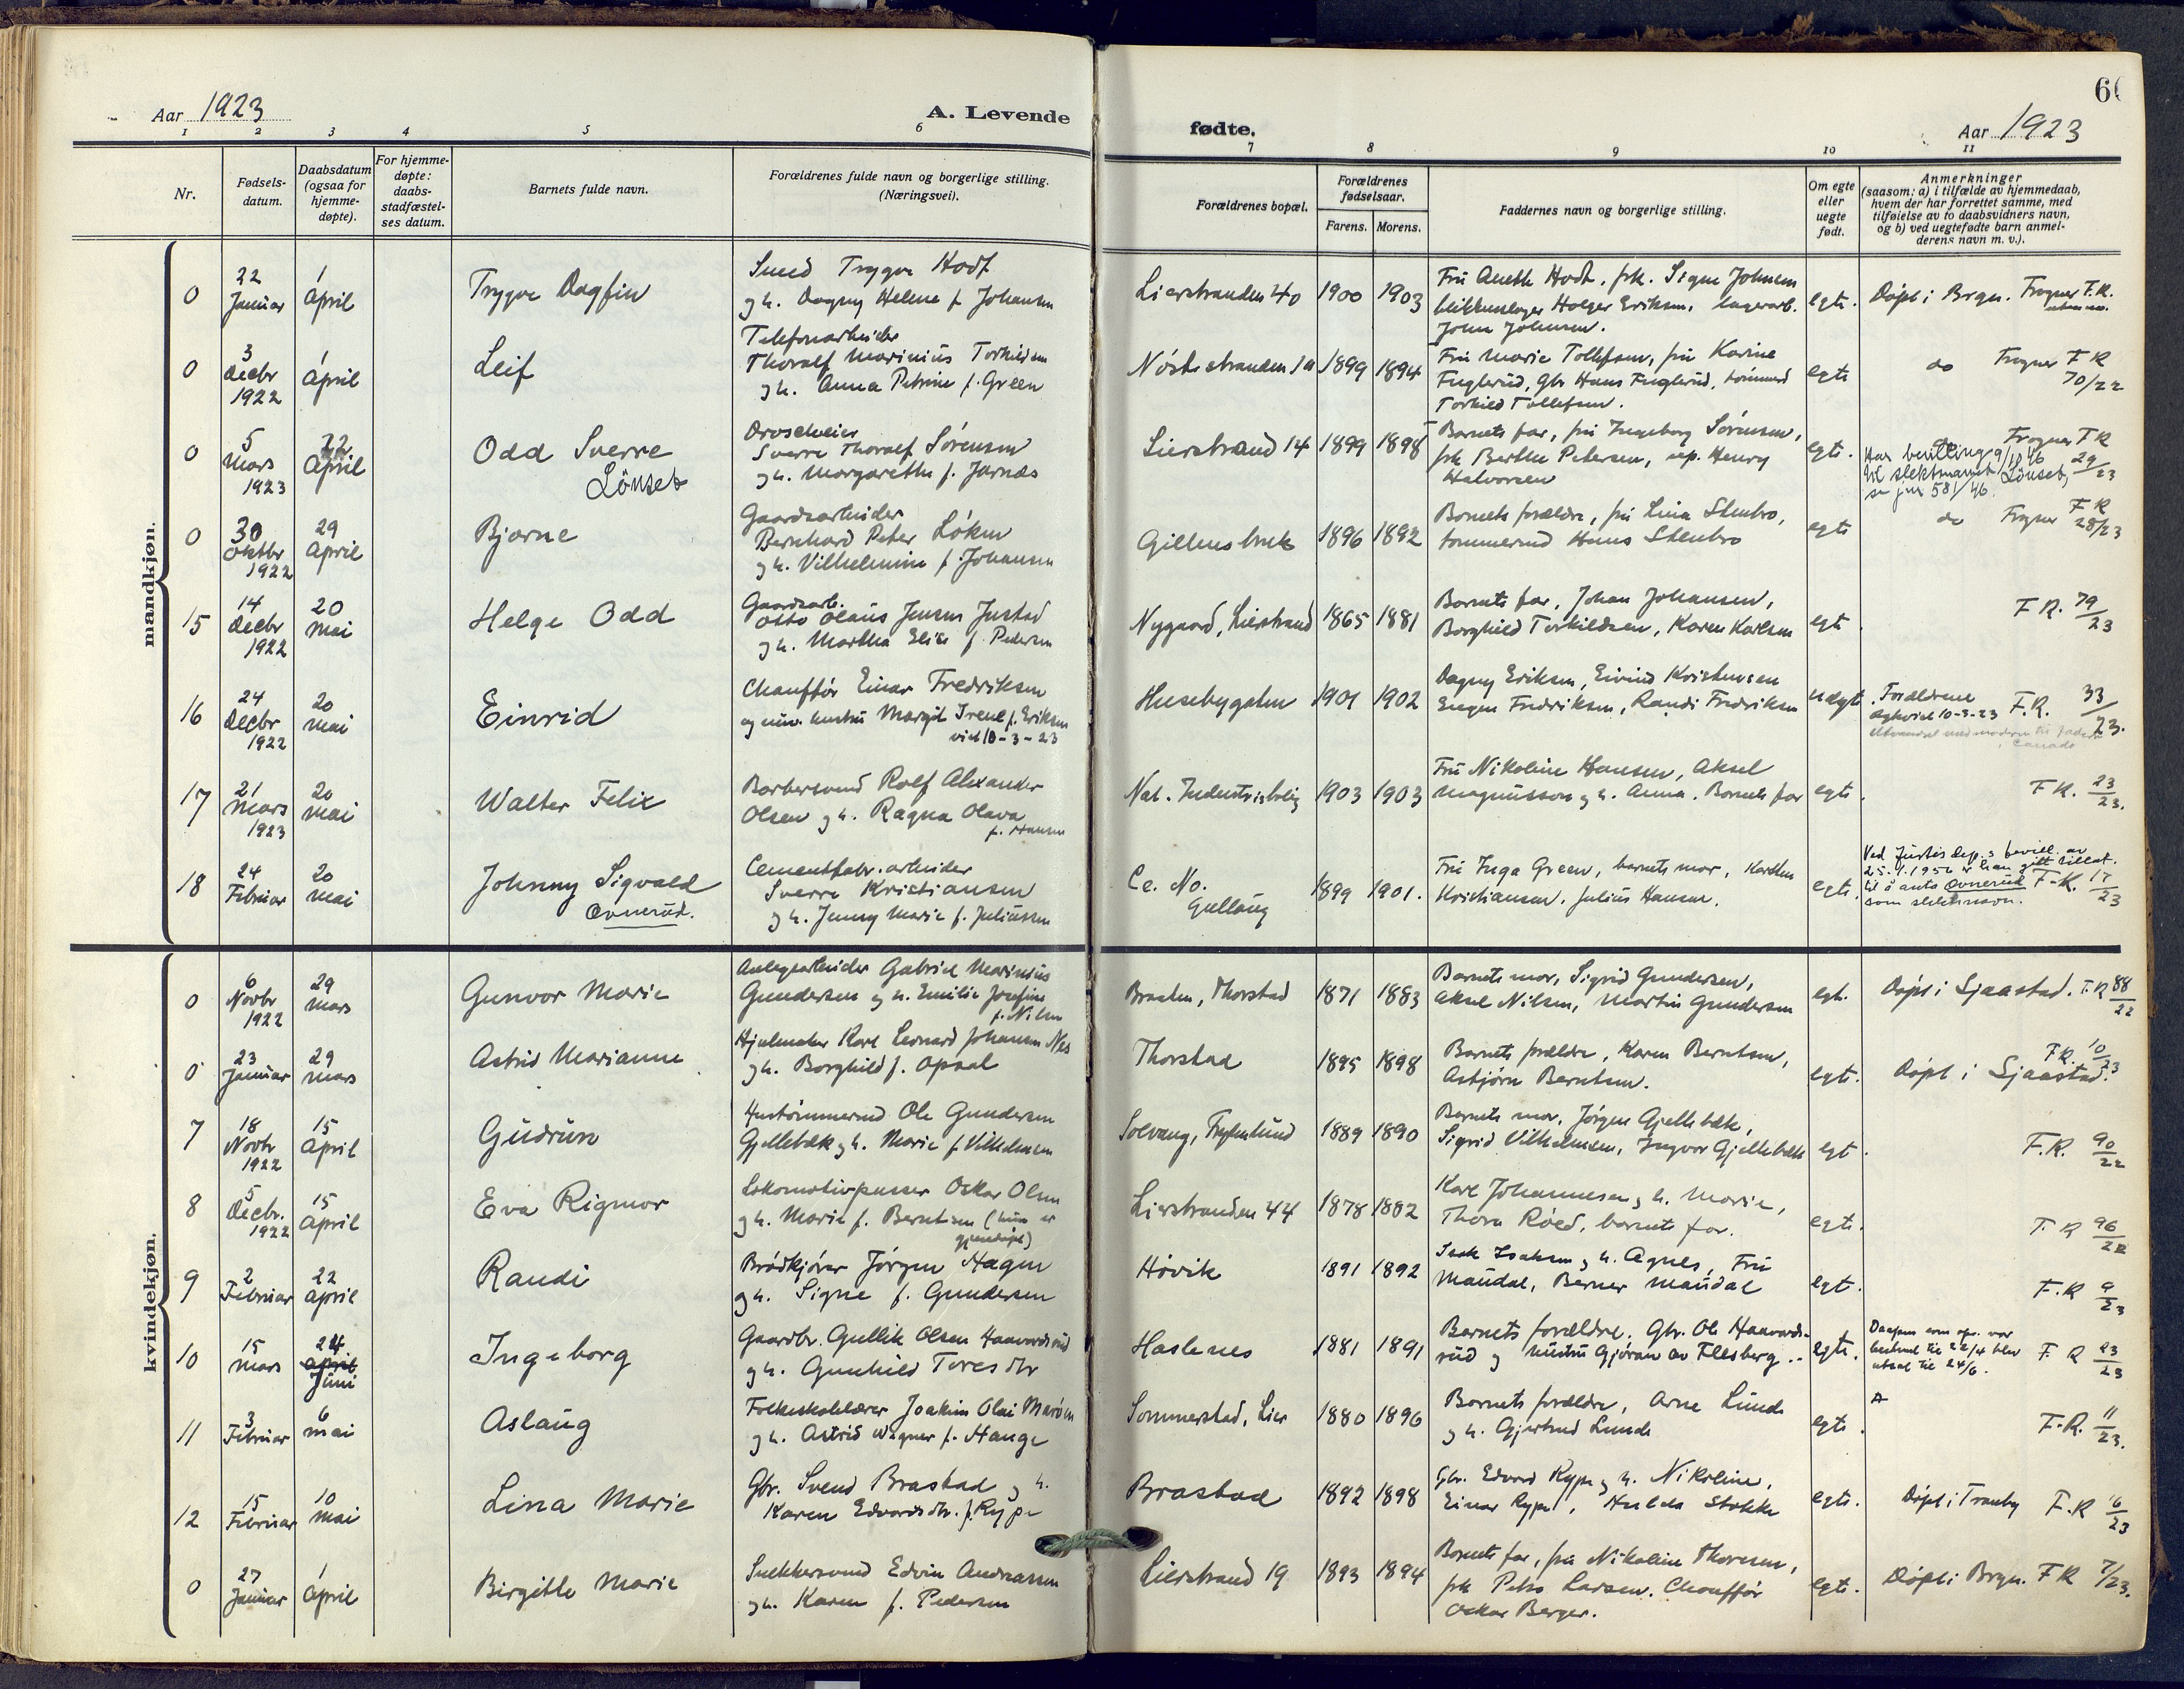 Aar 1923
A. Levende
fødte.
Aar 1923
1 2 3 4 5 6 7 8 9 10 11
Nr.
Fødsels-
datum.
Daabsdatum
(ogsaa for
hjemme-
døpte).
For hjemme-
døpte:
daabs-
stadfæstel-
ses datum.
Barnets fulde navn.
Forældrenes fulde navn og borgerlige stilling.
(Næringsvei).
Forældrenes bopæl.
Forældrenes
fødselsaar.
Farens. Morens.
Faddernes navn og borgerlige stilling.
Om egte
eller
uegte
født.
Anmerkninger
(saasom: a) i tilfælde av hjemmedaab,
hvem der har forrettet samme, med
tilføielse av to daabsvidners navn,
og b) ved uegtefødte barn anmel-
derens navn m. v.).
mandkjøn.
0
22
Januar
1
April
Trygve Dagfin
Smed Trygve Hodt
og h. Dagny Helene f. Johansen
Lierstranden 40
1900 1903
Fru Anette Hodt, frk. Signe Johnsen
blikkenslager Holger Eriksen, lagerarb.
John Johnsen.
egte.
Døpt i Brgn. Frogner F.R.
0
3
Decbr
1922
1
April
Leif
Telefonarbeider
Thoralf Marinius Torkildsen
og h. Anna Petrine f. Green
Nøstestranden 1a
1899 1894
Fru Marie Tollefsen, fru Karine
Fuglerud, Gbr Hans Fuglerud, tømmerm
Torkild Tollefsen.
egte
do Frogner F R
70/22
0
5
Mars
1923
22
April
Odd Sverre
Lönset
Droscheeier
Sverre Thoralf Sørensen
og h. Margarethe f. Jarnæs
Lierstrand 14
1899 1898
Barnets far, fru Ingeborg Sørensen,
frk Berthe Petersen, rep. Henry
Halvorsen
egte.
Frogner F R
29/23
Har bevilling 9/11 46
til slektnavnet Lönset,
se jnr 581/46.
0
30
Oktbr
1922
29
April
Bjarne
Gaardsarbeider
Bernhard Peter Løken
og h. Vilhelmine f. Johansen
Gilhusbruk
1896 1892
Barnets forældre, fru Lina Stenbro,
tømmermd Hans Stenbro
egte
do Frogner F R
28/23
15
14
Decbr
1922
20
Mai
Helge Odd
Gaardsarb.
Otto Olaus Jensen Justad
og h. Martha Elise f. Pedersen
Nygaard, Lierstrand
1865 1881
Barnets far, Johan Johansen,
Borghild Torkildsen, Karen Karlsen
egte.
F R. 79/23
16
24
Decbr
1922
20
Mai
Einrid
Chauffør Einar Fredriksen
og nuv. hustru Margit Irene f. Eriksen
viet 10-3-23
Husebygaten
1901 1902
Dagny Eriksen, Eivind Kristensen
Eugen Fredriksen, Randi Fredriksen
uegte.
Forældrene
egteviet 10-3-23 F.R. 33/23.
17
21
Mars
1923
20
Mai
Walter Felix
Barbersvend Rolf Alexander
Olsen og h. Ragna Olava
f. Hansen
Nat. Industribolig
1903 1903
Fru Nikoline Hansen, Aksel
Magnusson og h. Anna. Barnets far
egte.
F R. 23/23.
18
24
Februar
20
Mai
Johnny Sigvald
Ovnerud.
Cementfabr. arbeider
Sverre Kristiansen
og h. Jenny Marie f. Juliussen
Ce. No.
Gullaug
1899 1901.
Fru Inga Green, barnets mor, Karsten
Kristiansen, Julius Hansen.
egte.
Ved Justisdep.s bevill. av
25.1.1950 er han gitt tillat.
til å anta Ovnerud F-R. 17/23
som slektsnavn.
kvindekjøn.
0
6
Novbr
1922
29
Mars
Gunvor Marie
Anlegsarbeider Gabriel Marinius
Gundersen og h. Emilie Josefine
f. Nilsen
Braaten, Thorstad
1871 1883
Barnets mor, Sigrid Gundersen,
Aksel Nilsen, Martin Gundersen
egte.
Døpt i Sjaastad. F.R 88/22
0
23
Januar
29
Mars
Astrid Marianne
Hjulmaker Karl Leonard Johansen Nes
og h. Borghild f. Opsal
Thorstad
1895 1898
Barnets forældre, Karen Berntsen,
Asbjørn Berntsen.
egte.
F R. 10/23
Døpt i Sjaastad.
7
18
Novbr
1922
15
April
Gudrun
Hustømmermd Ole Gundersen
Gjellebæk og h. Marie f. Vilhelmsen
Solvang, Frylmlund
1889 1890
Barnets mor, Jørgen Gjellebæk,
Sigrid Vilhelmsen, Ingvar Gjellebæk
egte.
F.R. 90/22
8
5
Decbr.
1922
15
April
Eva Rigmor
Lokomotivpusser Oskar Olsen
og h. Marie f. Berntsen (hun er
gjendøpt)
Lierstranden 44
1878 1882
Karl Johannesen og h. Marie,
Thora Røed, barnets far.
egte.
F. R 96/22
9
2
Februar
22
April
Randi
Brødkjører Jørgen Hagen
og h. Signe f. Gundersen
Høvik
1891 1892
Isak Isaksen og h. Agnes, Fru
Maudal, Berner Maudal
egte.
F.R 9/23
10
15
Mars
24
April
Juni
Ingeborg
Gaardbr. Gullik Olsen Haavardsrud
og h. Gunhild Toresdtr
Haslenes
1881 1891
Barnets forældre, Gbr. Ole Haavards-
rud og hustru Gjøran av Flesberg.
egte.
Daapen som opr. var
bestemt til 22/4 blev
utsat til 24/6. F. R 23/23
11
3
Februar
6
Mai
Aslaug
Folkeskolelærer Joakim Olai Marøen
og h. Astrid Wagner f. Hauge
Sommerstad, Lier
1880 1896
Barnets forældre, Arne Lunde
og h. Gjertrud Lunde
egte.
F.R. 11/23.
12
15
Februar
10
Mai
Lina Marie
Gbr. Svend Brastad og h.
Karen Edvardsdtr. f. Rype
Brastad
1892 1898
Gbr. Edvard Rype og h. Nikoline,
Einar Rype, Hulda Stokke
egte.
Døpt i Tranby F.R 16/23
0
27
Januar
1
April
Birgitte Marie
Snekkersvend Edvin Andreassen
og h. Karen f. Pedersen
Lierstrand 19
1893 1894
Barnets far, fru Nikoline Thoresen,
frk Petra Larsen. Chauffør
Oskar Berger.
egte.
Døpt i Brgn. F R 7/23.